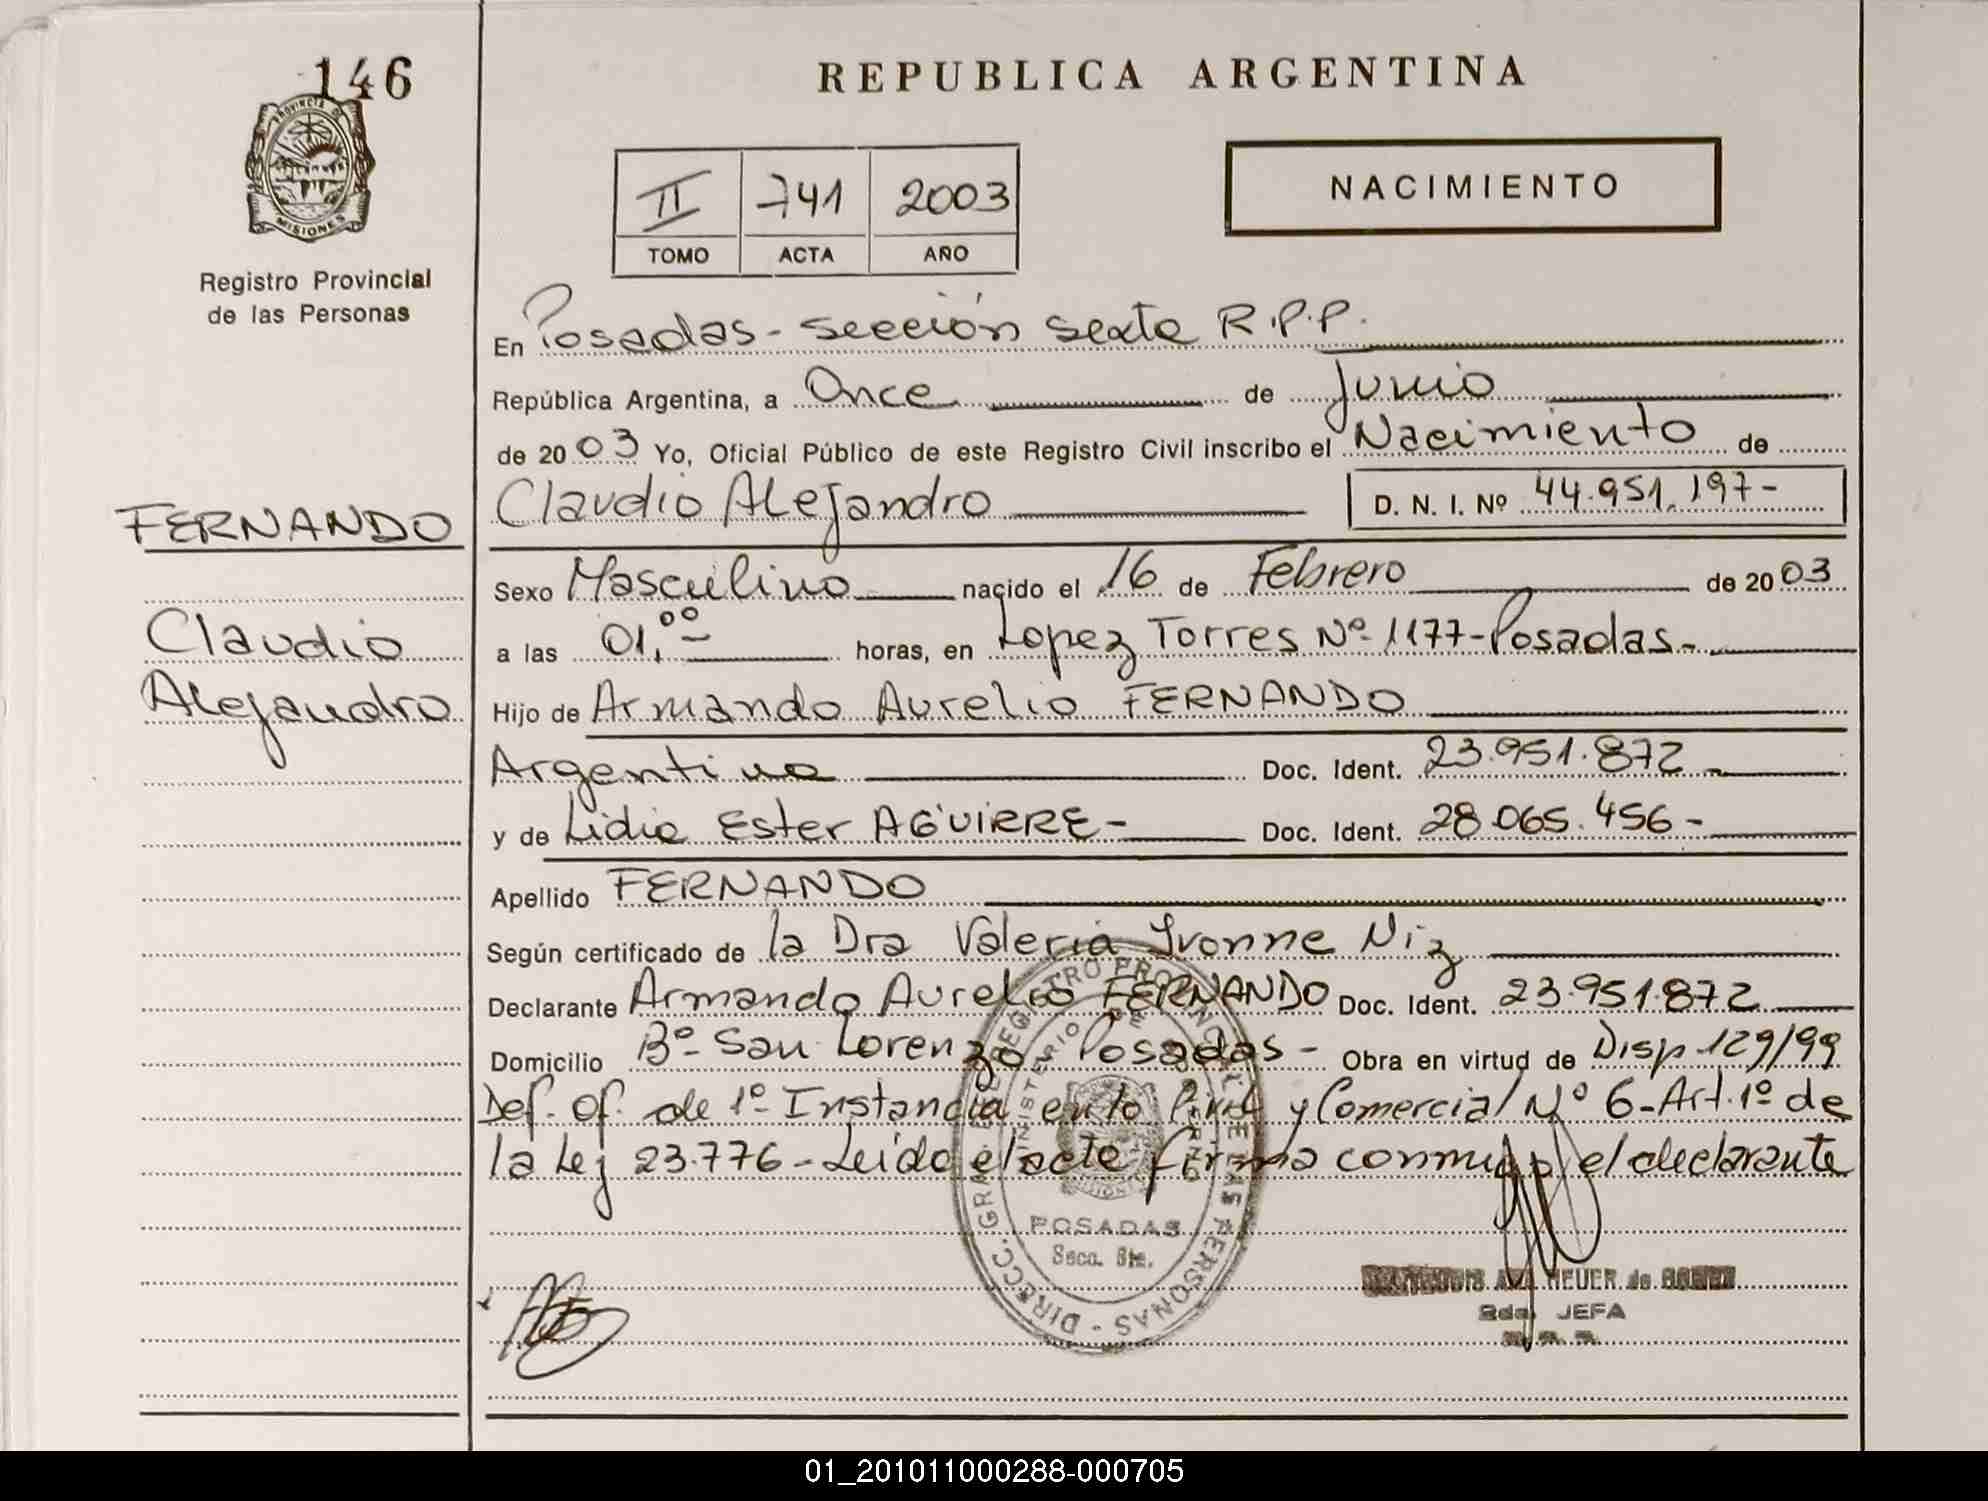 146
PROVINCIA DE
MISIONES
Registro Provincial
de las Personas
FERNANDO
Claudio
Alejandro
REPUBLICA ARGENTINA
II 741 2003
TOMO ACTA AÑO
NACIMIENTO
En Posadas - sección sexta R.P.P.
República Argentina, a Once de Junio
de 2003 Yo, Oficial Público de este Registro Civil inscribo el Nacimiento de
Claudio Alejandro D. N. I. Nº 44.951.197-
Sexo Masculino nacido el 16 de Febrero de 2003
a las 01,00 horas, en Lopez Torres Nº 1177-Posadas-
Hijo de Armando Aurelio FERNANDO
Argentina Doc. Ident. 23.951.872-
y de Lidia Ester AGUIRRE- Doc. Ident. 28.065.456-
Apellido FERNANDO
Según certificado de la Dra Valeria Ivonne Niz
Declarante Armando Aurelio FERNANDO Doc. Ident. 23.951.872
Domicilio Bº- San Lorenzo Posadas - Obra en virtud de Disp 129/99
Def. Of. de 1º- Instancia en lo Civil y Comercial Nº 6-Art.1º de
la Ley 23.776-Leído el acta firma conmigo el declarante
DIRECC. GRAL. DEL REGISTRO PROVINCIAL DE LAS PERSONAS -
MINISTERIO DE GOBIERNO
POSADAS
Secc. 6ta.
MEUER de
JEFA
01_201011000288-000705